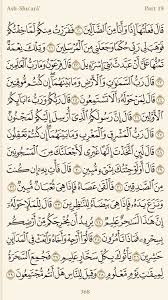 Ash-Shu'arā' Part 19
قَالَ فَعَلْتُهَآ إِذًا وَأَنَا۠ مِنَ ٱلضَّآلِّينَ ٢٠ فَفَرَرْتُ مِنكُمْ لَمَّا خِفْتُكُمْ
فَوَهَبَ لِى رَبِّى حُكْمًا وَجَعَلَنِى مِنَ ٱلْمُرْسَلِينَ ٢١ وَتِلْكَ نِعْمَةٌ
تَمُنُّهَا عَلَىَّ أَنْ عَبَّدتَّ بَنِىٓ إِسْرَٰٓءِيلَ ٢٢ قَالَ فِرْعَوْنُ وَمَا رَبُّ ٱلْعَٰلَمِينَ ٢٣
قَالَ رَبُّ ٱلسَّمَٰوَٰتِ وَٱلْأَرْضِ وَمَا بَيْنَهُمَآ إِن كُنتُم مُّوقِنِينَ ٢٤
قَالَ لِمَنْ حَوْلَهُۥٓ أَلَا تَسْتَمِعُونَ ٢٥ قَالَ رَبُّكُمْ وَرَبُّ ءَابَآئِكُمُ ٱلْأَوَّلِينَ ٢٦
قَالَ إِنَّ رَسُولَكُمُ ٱلَّذِىٓ أُرْسِلَ إِلَيْكُمْ لَمَجْنُونٌ ٢٧
قَالَ رَبُّ ٱلْمَشْرِقِ وَٱلْمَغْرِبِ وَمَا بَيْنَهُمَآ إِن كُنتُمْ تَعْقِلُونَ ٢٨
قَالَ لَئِنِ ٱتَّخَذْتَ إِلَٰهًا غَيْرِى لَأَجْعَلَنَّكَ مِنَ ٱلْمَسْجُونِينَ ٢٩
قَالَ أَوَلَوْ جِئْتُكَ بِشَىْءٍ مُّبِينٍ ٣٠ قَالَ فَأْتِ بِهِۦٓ إِن كُنتَ
مِنَ ٱلصَّٰدِقِينَ ٣١ فَأَلْقَىٰ عَصَاهُ فَإِذَا هِىَ ثُعْبَانٌ مُّبِينٌ ٣٢
وَنَزَعَ يَدَهُۥ فَإِذَا هِىَ بَيْضَآءُ لِلنَّٰظِرِينَ ٣٣ قَالَ لِلْمَلَإِ حَوْلَهُۥٓ
إِنَّ هَٰذَا لَسَٰحِرٌ عَلِيمٌ ٣٤ يُرِيدُ أَن يُخْرِجَكُم مِّنْ أَرْضِكُم
بِسِحْرِهِۦ فَمَاذَا تَأْمُرُونَ ٣٥ قَالُوٓا۟ أَرْجِهْ وَأَخَاهُ وَٱبْعَثْ فِى ٱلْمَدَآئِنِ
حَٰشِرِينَ ٣٦ يَأْتُوكَ بِكُلِّ سَحَّارٍ عَلِيمٍ ٣٧ فَجُمِعَ ٱلسَّحَرَةُ
لِمِيقَٰتِ يَوْمٍ مَّعْلُومٍ ٣٨ وَقِيلَ لِلنَّاسِ هَلْ أَنتُم مُّجْتَمِعُونَ ٣٩
368